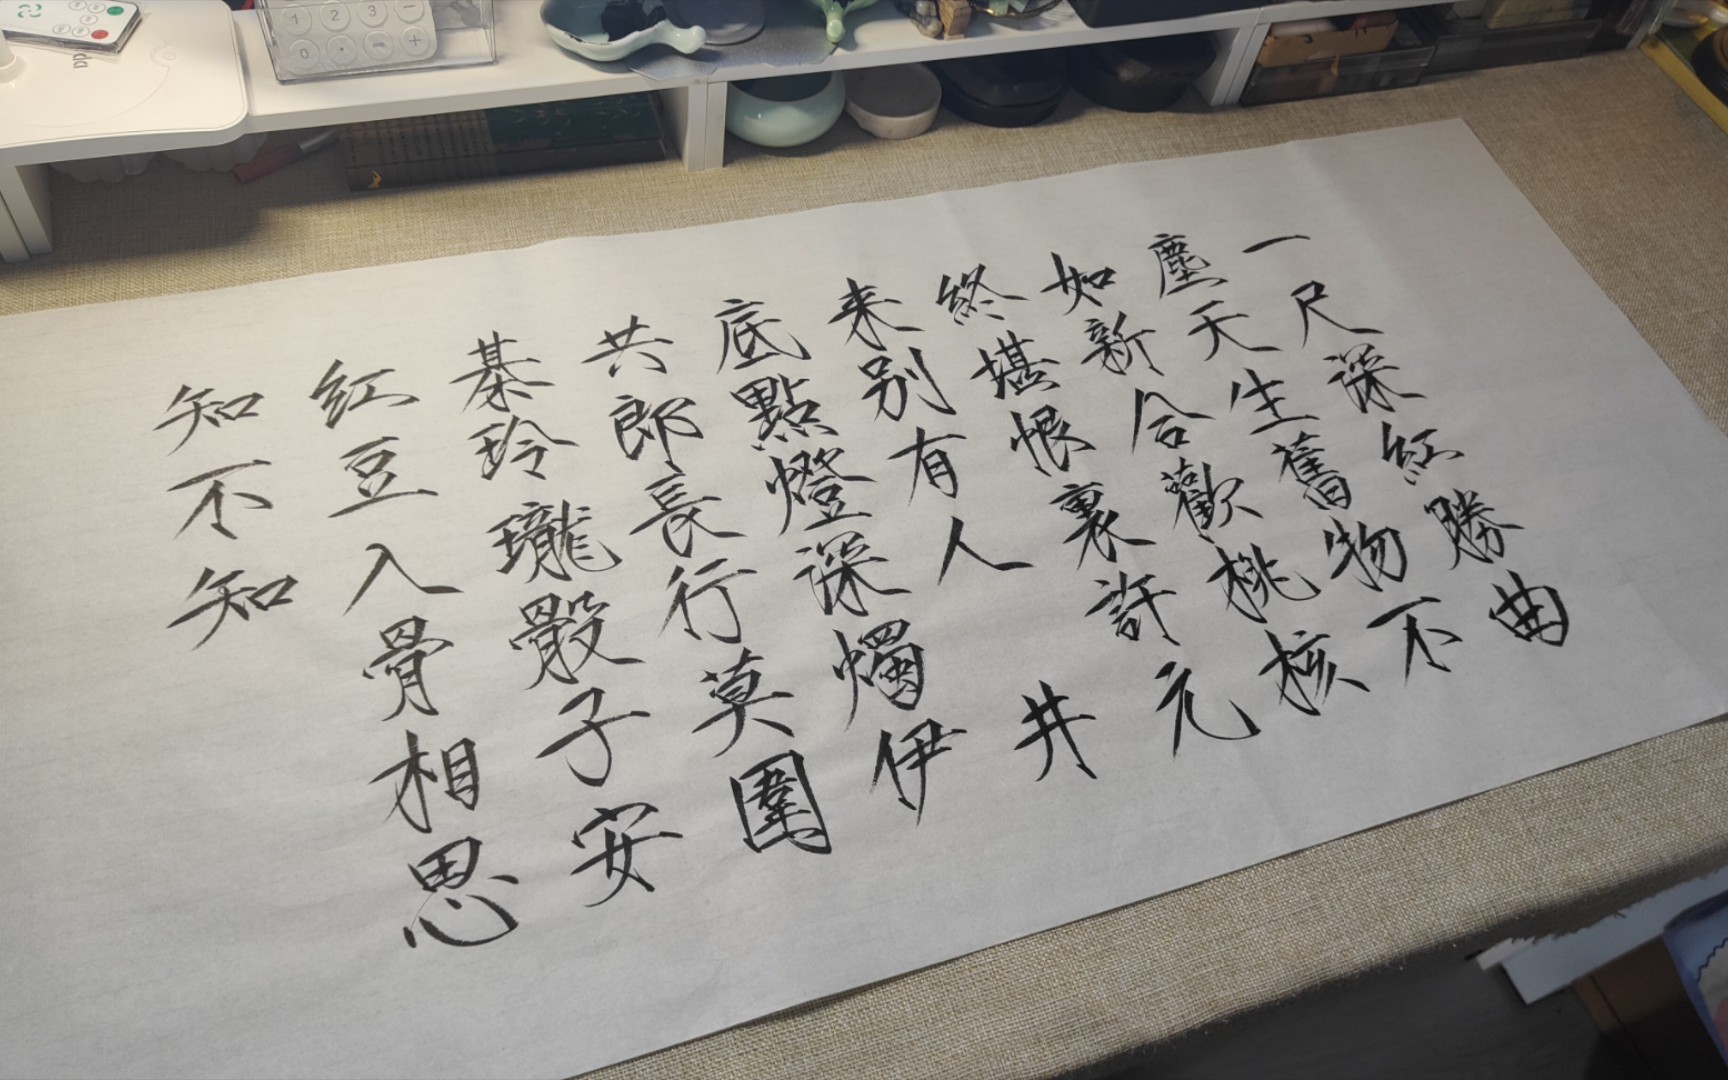 一尺深紅勝曲
塵天生舊物不
如新合歡桃核
終堪恨裏許元
来别有人井
底點燈深燭伊
共郎長行莫圍
棊玲瓏骰子安
紅豆入骨相思
知不知
1 2 3 −
0 · = +